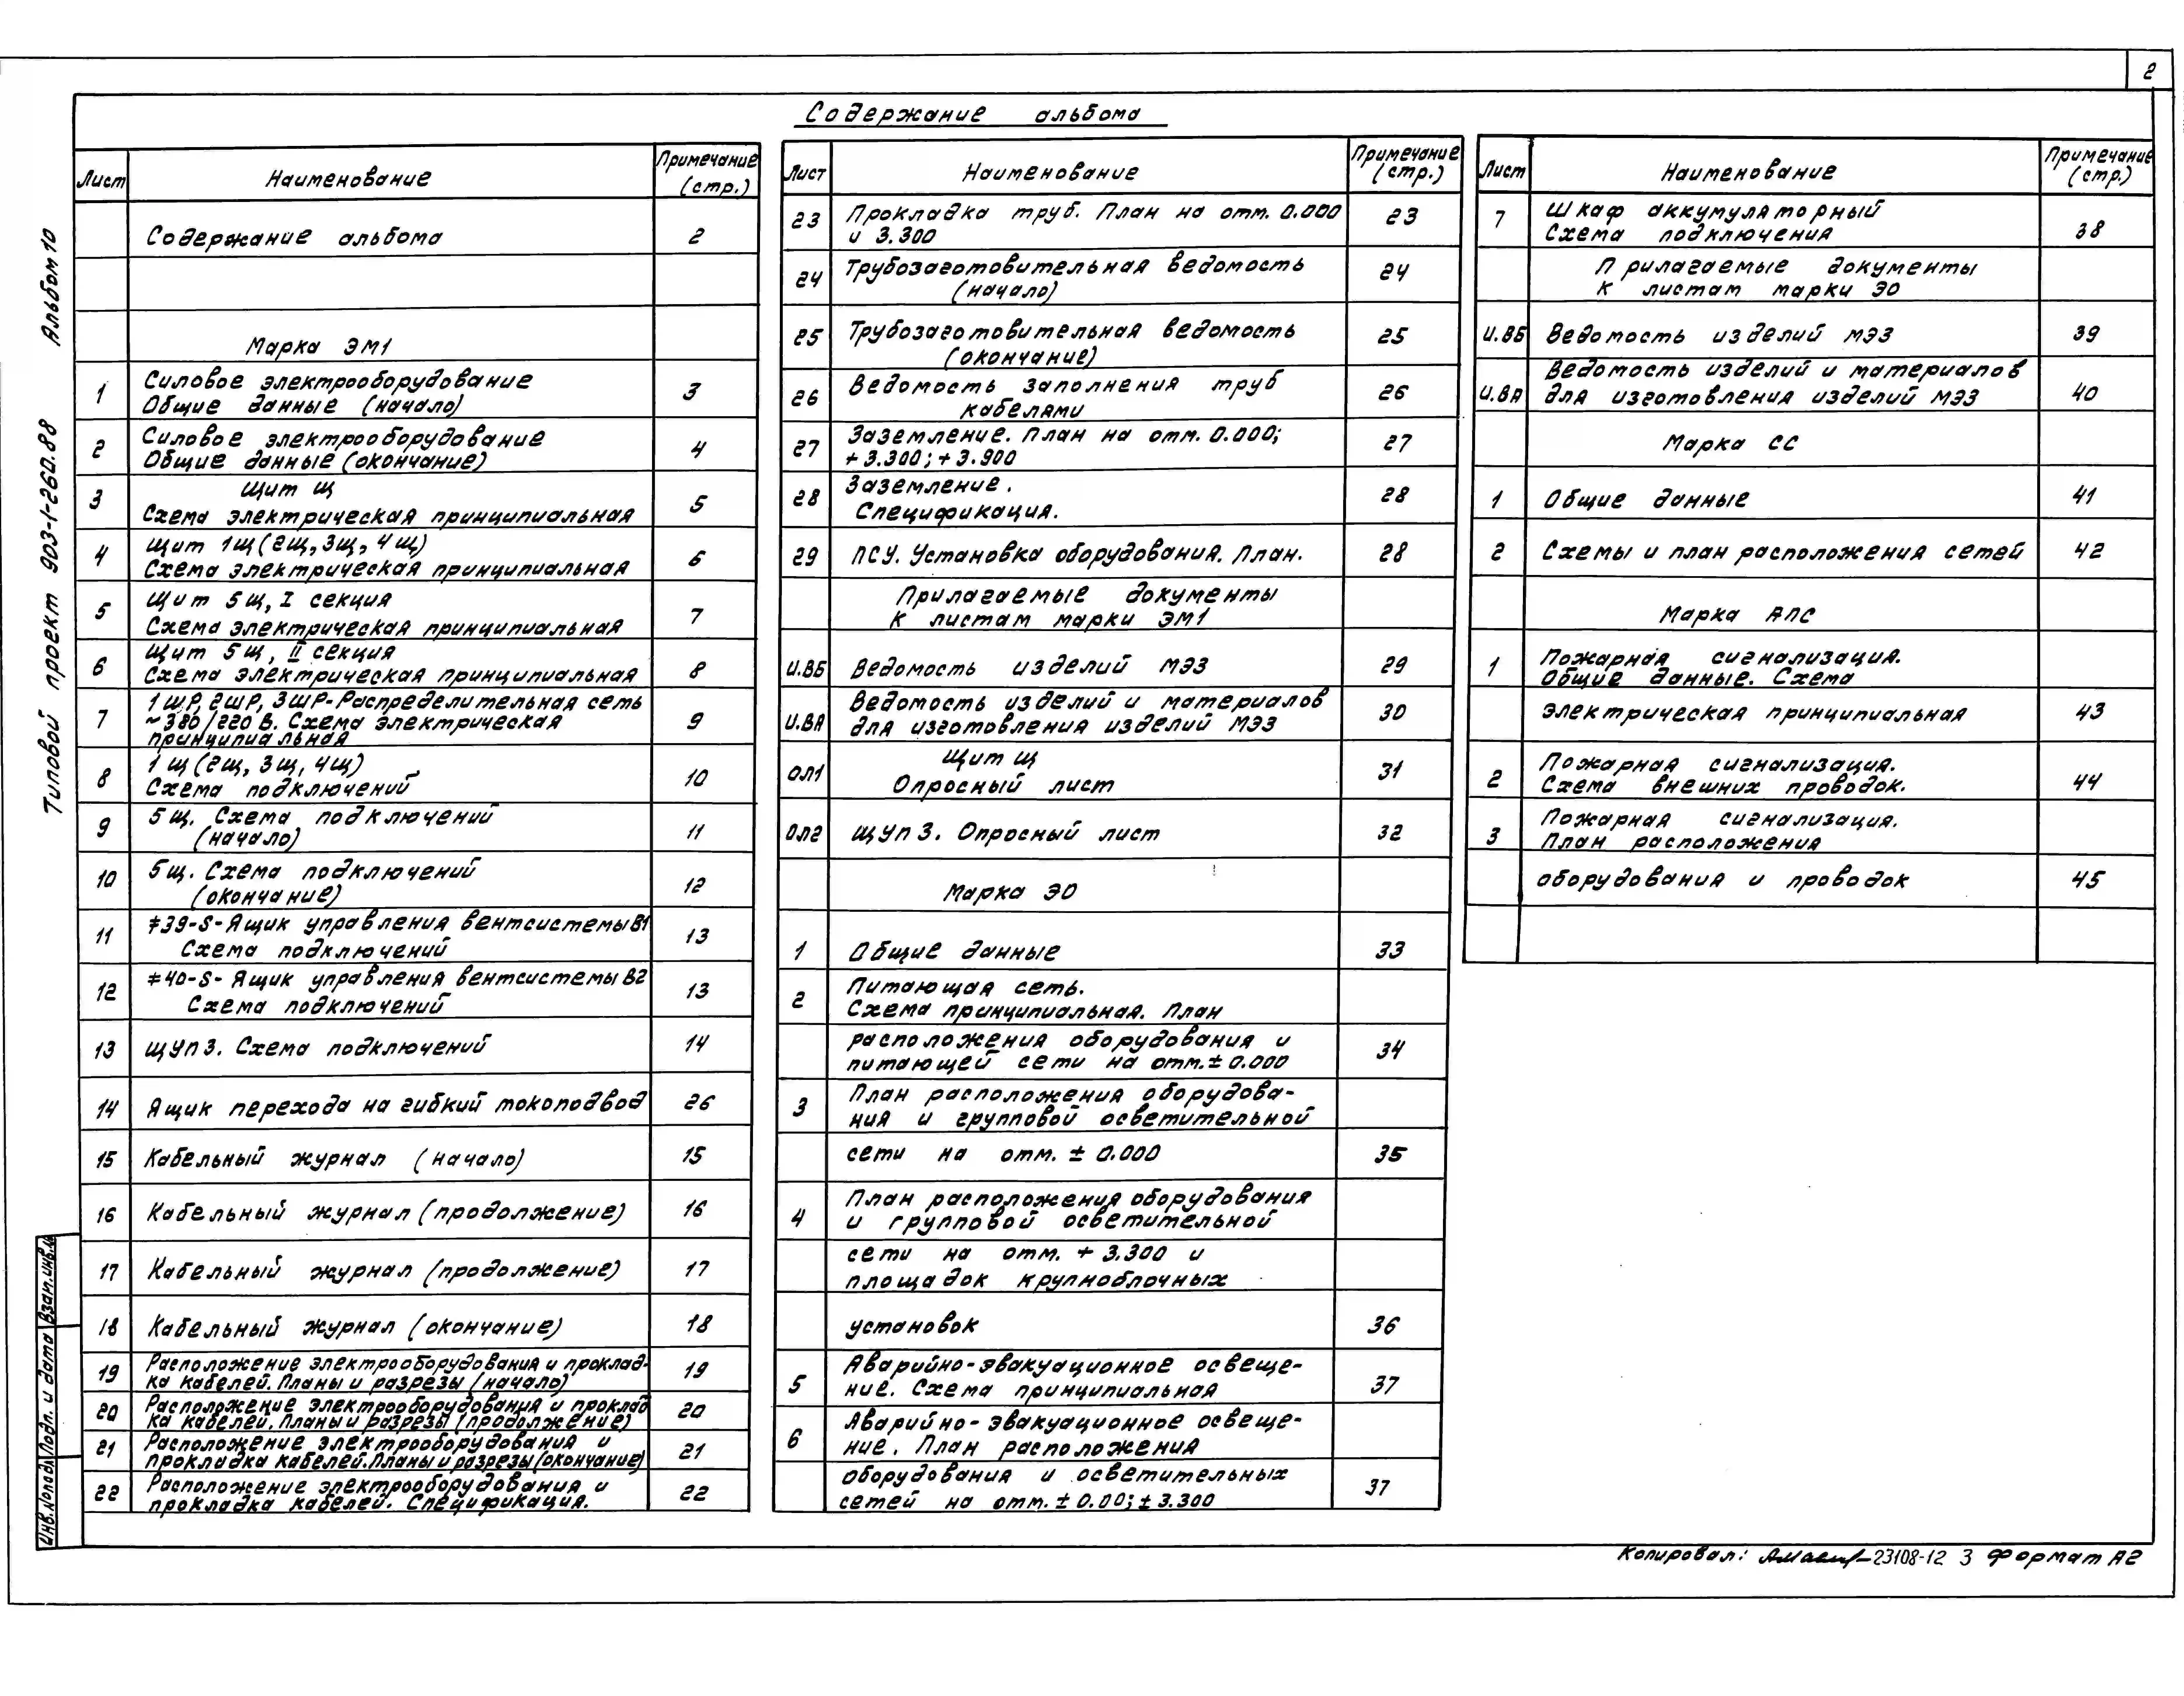 2
Содержание альбома
Альбом 10
Типовой проект 903-1-260.88
Лист Наименование Примечание (стр.)
Содержание альбома 2
Марка ЭМ1
1 Силовое электрооборудование
Общие данные (начало) 3
2 Силовое электрооборудование
Общие данные (окончание) 4
3 Щит Щ
Схема электрическая принципиальная 5
4 Щит 1щ (2щ, 3щ, 4щ)
Схема электрическая принципиальная 6
5 Щит 5щ, I секция
Схема электрическая принципиальная 7
6 Щит 5щ, II секция
Схема электрическая принципиальная 8
7 1ШР, 2ШР, 3ШР-Распределительная сеть
~380/220 В. Схема электрическая 9
принципиальная
8 1щ (2щ, 3щ, 4щ)
Схема подключений 10
9 5щ. Схема подключений
(начало) 11
10 5щ. Схема подключений
(окончание) 12
11 ‡39-S-Ящик управления вентсистемы В1
Схема подключений 13
12 ‡40-S-Ящик управления вентсистемы В2
Схема подключений 13
13 ЩУп3. Схема подключений 14
14 Ящик перехода на гибкий токоподвод 26
15 Кабельный журнал (начало) 15
16 Кабельный журнал (продолжение) 16
17 Кабельный журнал (продолжение) 17
18 Кабельный журнал (окончание) 18
19 Расположение электрооборудования и проклад-
ка кабелей. Планы и разрезы (начало) 19
20 Расположение электрооборудования и проклад
ка кабелей. Планы и разрезы (продолжение) 20
21 Расположение электрооборудования и
прокладка кабелей. Планы и разрезы (окончание) 21
22 Расположение электрооборудования и
прокладка кабелей. Спецификация. 22
Лист Наименование Примечание (стр.)
23 Прокладка труб. План на отм. 0.000
и 3.300 23
24 Трубозаготовительная ведомость
(начало) 24
25 Трубозаготовительная ведомость
(окончание) 25
26 Ведомость заполнения труб
кабелями 26
27 Заземление. План на отм. 0.000;
+3.300; +3.900 27
28 Заземление.
Спецификация. 28
29 ПСУ. Установка оборудования. План. 28
Прилагаемые документы
к листам марки ЭМ1
И.ВБ Ведомость изделий МЭЗ 29
И.ВА Ведомость изделий и материалов
для изготовления изделий МЭЗ 30
ОЛ1 Щит Щ
Опросный лист 31
ОЛ2 ЩУп 3. Опросный лист 32
Марка ЭО
1 Общие данные 33
2 Питающая сеть.
Схема принципиальная. План
расположения оборудования и
питающей сети на отм. ± 0.000 34
3 План расположения оборудова-
ния и групповой осветительной
сети на отм. ± 0.000 35
4 План расположения оборудования
и групповой осветительной
сети на отм. + 3.300 и
площадок крупноблочных
установок 36
5 Аварийно-эвакуационное освеще-
ние. Схема принципиальная 37
6 Аварийно-эвакуационное освеще-
ние. План расположения
оборудования и осветительных
сетей на отм. ± 0.00; ± 3.300 37
Лист Наименование Примечание (стр.)
7 Шкаф аккумуляторный
Схема подключения 38
Прилагаемые документы
к листам марки ЭО
И.ВБ Ведомость изделий МЭЗ 39
И.ВА Ведомость изделий и материалов
для изготовления изделий МЭЗ 40
Марка СС
1 Общие данные 41
2 Схемы и план расположения сетей 42
Марка АПС
1 Пожарная сигнализация.
Общие данные. Схема
электрическая принципиальная 43
2 Пожарная сигнализация.
Схема внешних проводок. 44
3 Пожарная сигнализация.
План расположения
оборудования и проводок 45
Инв.№подл. Подп. и дата Взам.инв.№
Копировал: 23108-12 3 Формат А2